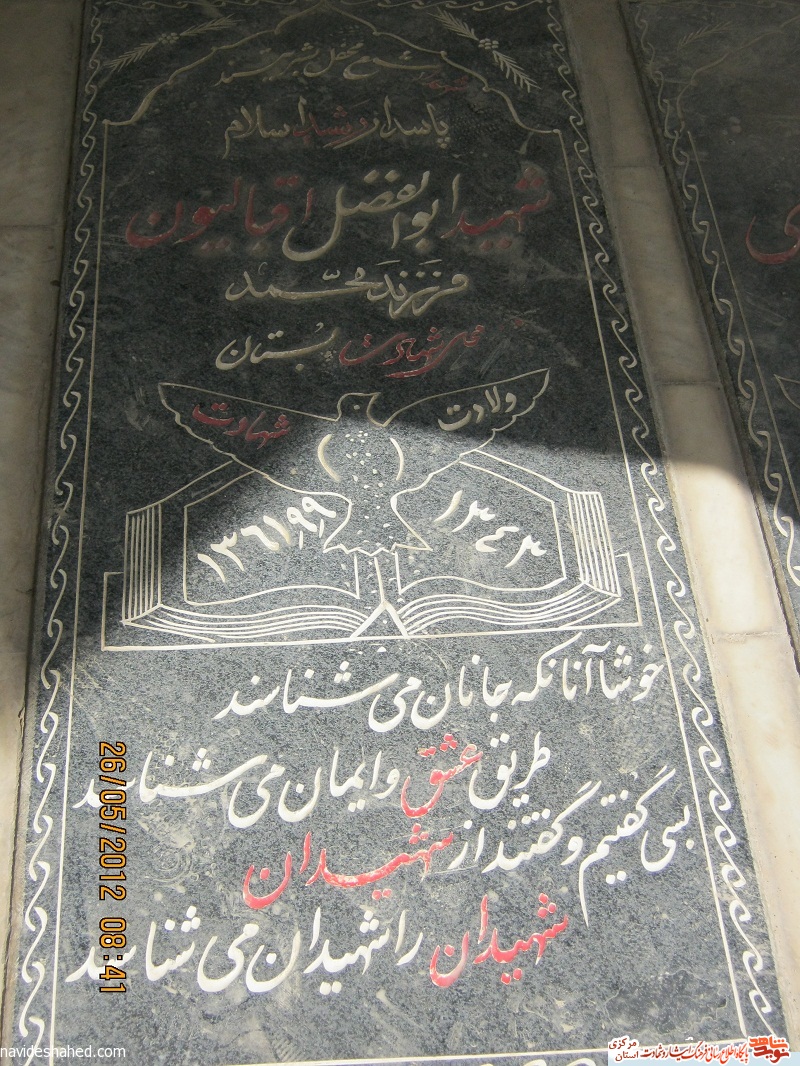 شهدا شمع محفل بشریتند
پاسدار رشید اسلام
شهید ابوالفضل اقبالیون
فرزند محمد
محل شهادت بستان
ولادت شهادت
۱۳۴۳ ۱۳۶۱٫۹٫۹
خوشا آنانکه جانان می شناسند
طریق عشق و ایمان می شناسند
بسی گفتیم و گفتند از شهیدان
شهیدان را شهیدان می شناسند
26/05/2012 08:41
navideshahed.com
نوید شاهد پایگاه اطلاع رسانی فرهنگ ایثار و شهادت استان مرکزی